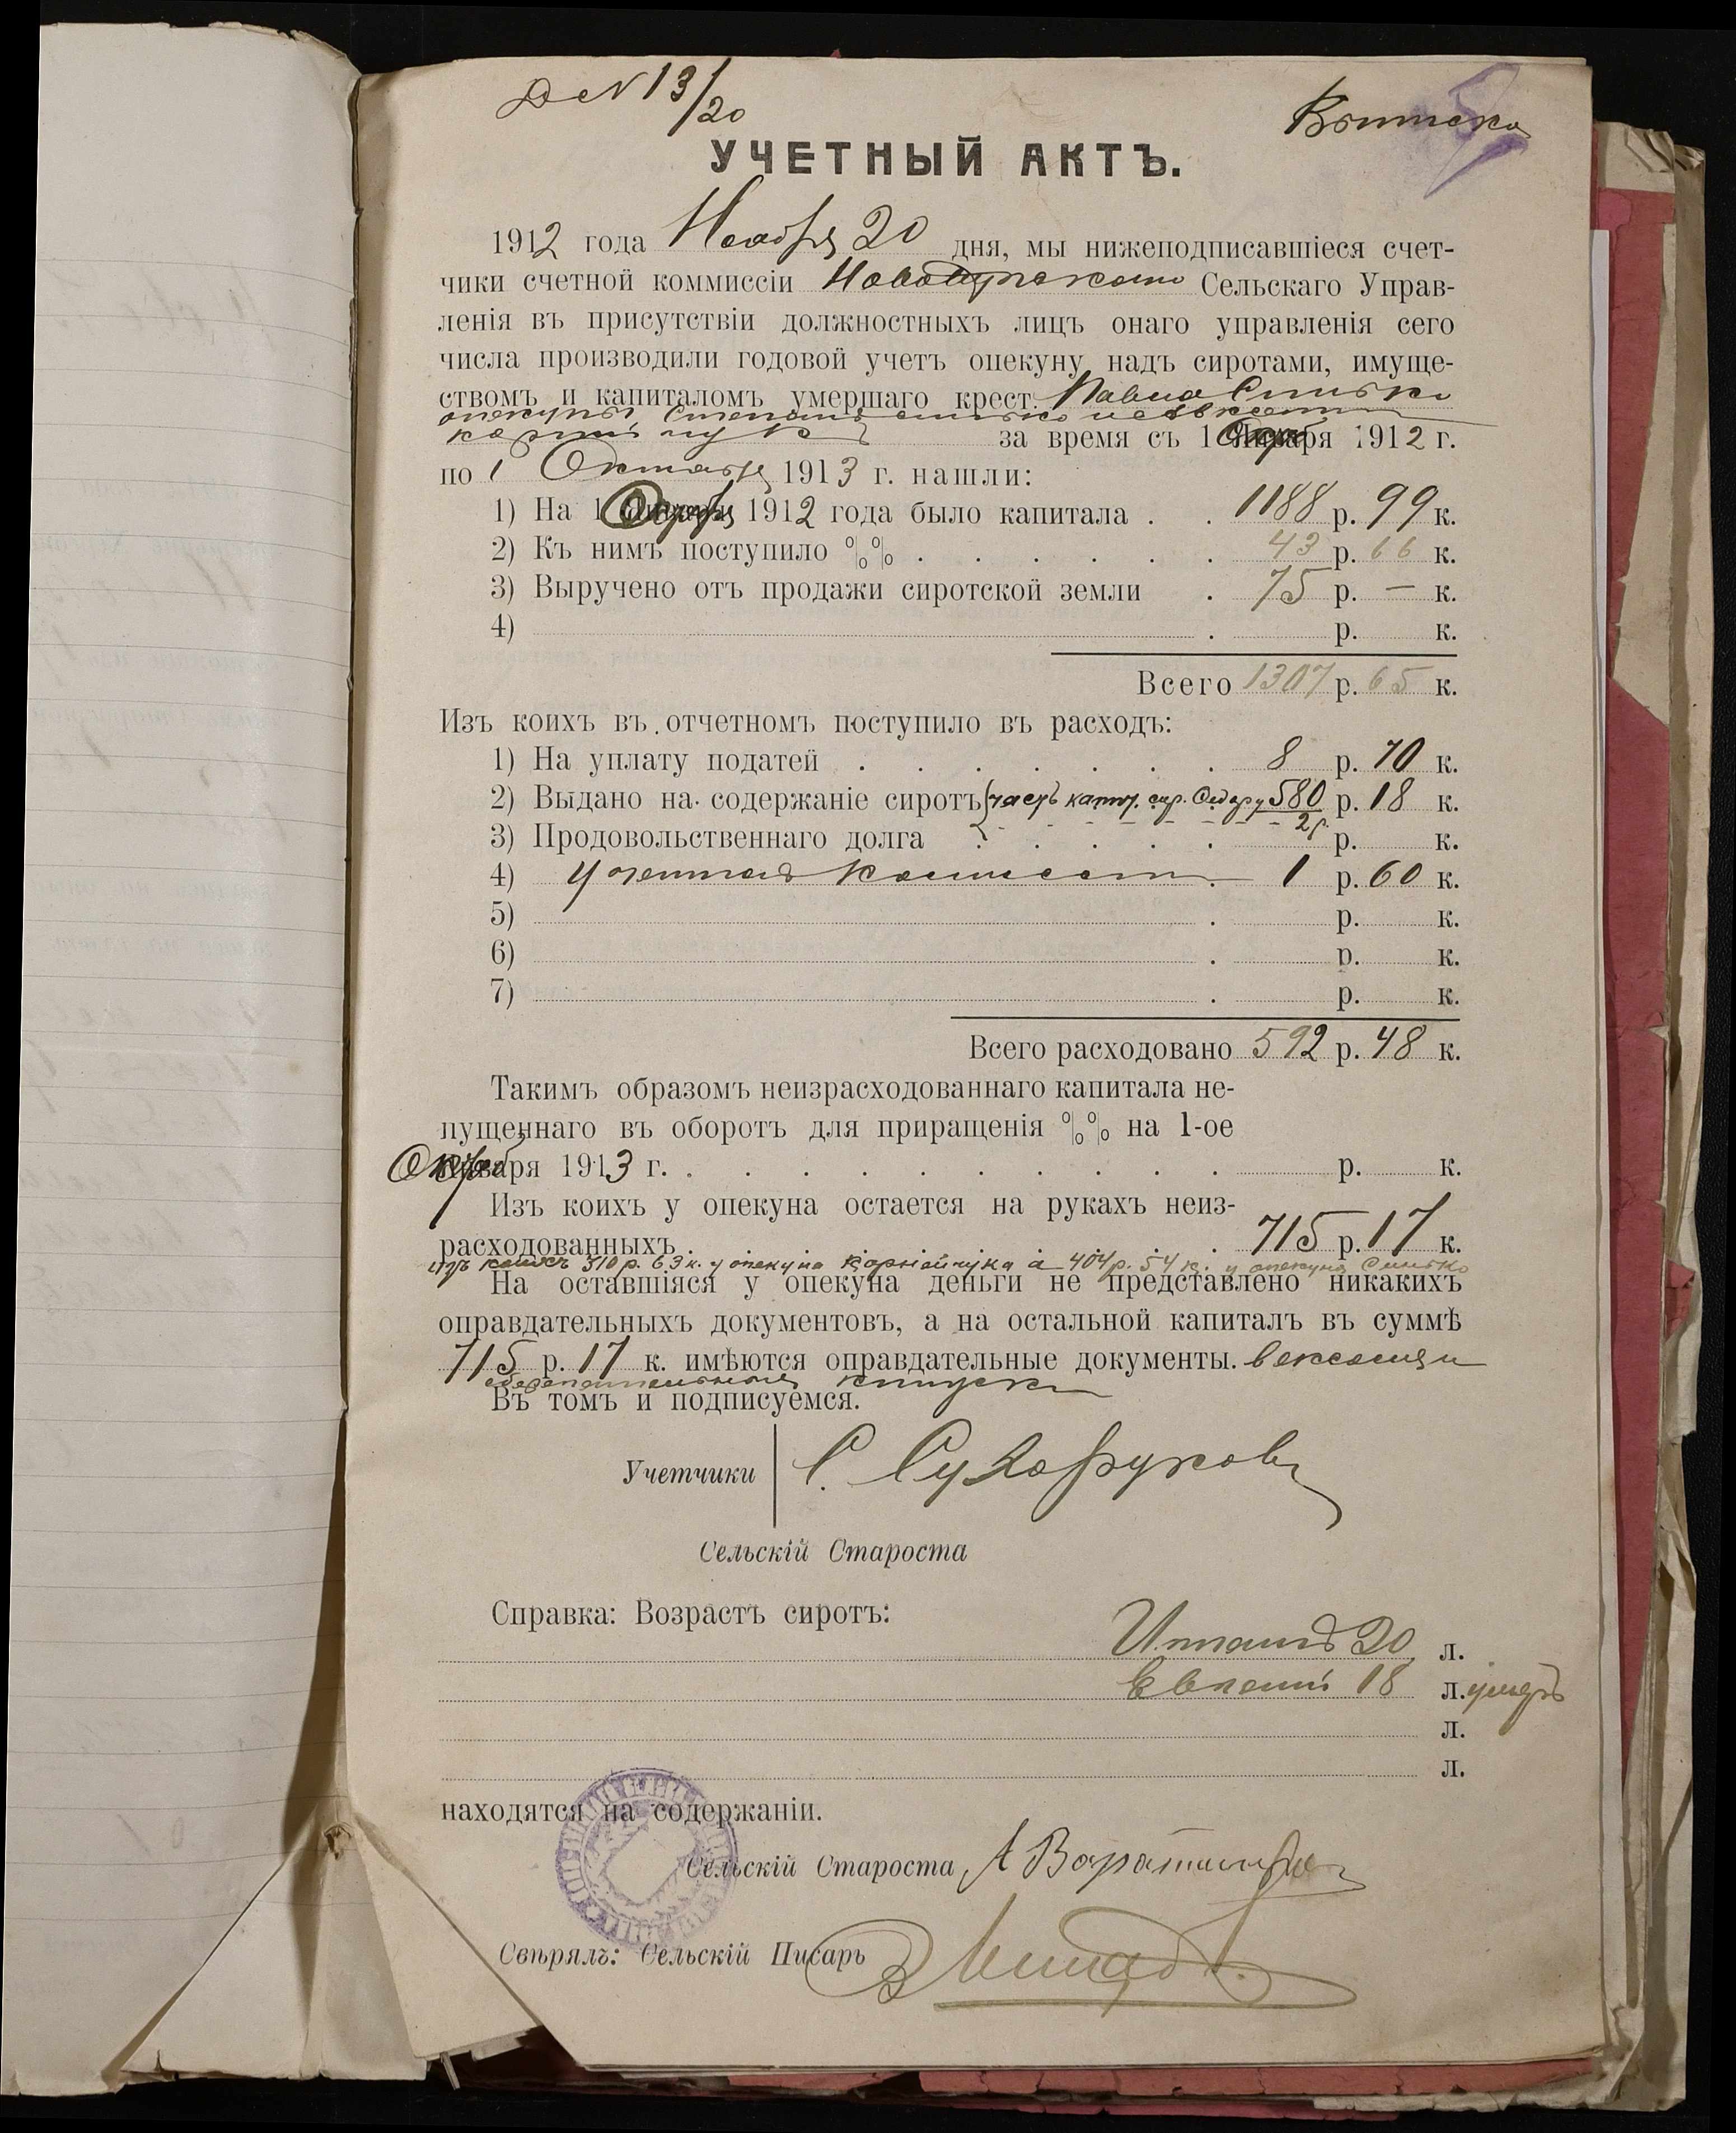 Д № 13/20
УЧЕТНЫЙ АКТЪ.
1912 года Ноября 20 дня, мы нижеподписавшіеся счет-
чики счетной коммиссіи Сельскаго Управ-
ленія въ присутствіи должностныхъ лицъ онаго управленія сего
числа производили годовой учетъ опекуну надъ сиротами, имуще-
ствомъ и капиталомъ умершаго крест. Павла Синько
опекуны Степанъ Синько и
за время съ 1 Января 1912 г.
по 1 Октября 1913 г. нашли:
1) На 1 Октября 1912 года было капитала . . 1188 р. 99 к.
2) Къ нимъ поступило %% . . . . . . 43 р. 66 к.
3) Выручено отъ продажи сиротской земли . 75 р. — к.
4) . р. к.
Всего 1307 р. 65 к.
Изъ коихъ въ отчетномъ поступило въ расходъ:
1) На уплату податей . . . . . . . 8 р. 70 к.
2) Выдано на содержаніе сиротъ часть капит. сир. Федору 580 р. 18 к.
2р.
3) Продовольственнаго долга . . . . . р. к.
4) Учетной Комиссіи . 1 р. 60 к.
5) . р. к.
6) . р. к.
7) . р. к.
Всего расходовано 592 р. 48 к.
Такимъ образомъ неизрасходованнаго капитала не-
пущеннаго въ оборотъ для приращенія %% на 1-ое
Октября 1913 г. . . . . . . . . . . р. к.
Изъ коихъ у опекуна остается на рукахъ неиз-
расходованныхъ . . . . . 715 р. 17 к.
изъ коихъ 310 р. 63 к. у опекуна Корнійчука а 404 р. 54 к. у опекуна Синько
На оставшіяся у опекуна деньги не представлено никакихъ
оправдательныхъ документовъ, а на остальной капиталъ въ суммѣ
715 р. 17 к. имѣются оправдательные документы. векселя и
Въ томъ и подписуемся.
Учетчики С. Сухоруковъ
Сельскій Староста
Справка: Возрастъ сиротъ:
20 л.
Евгений 18 л. умеръ
л.
л.
находятся на содержаніи.
Сельскій Староста А
Свѣрялъ: Сельскій Писарь